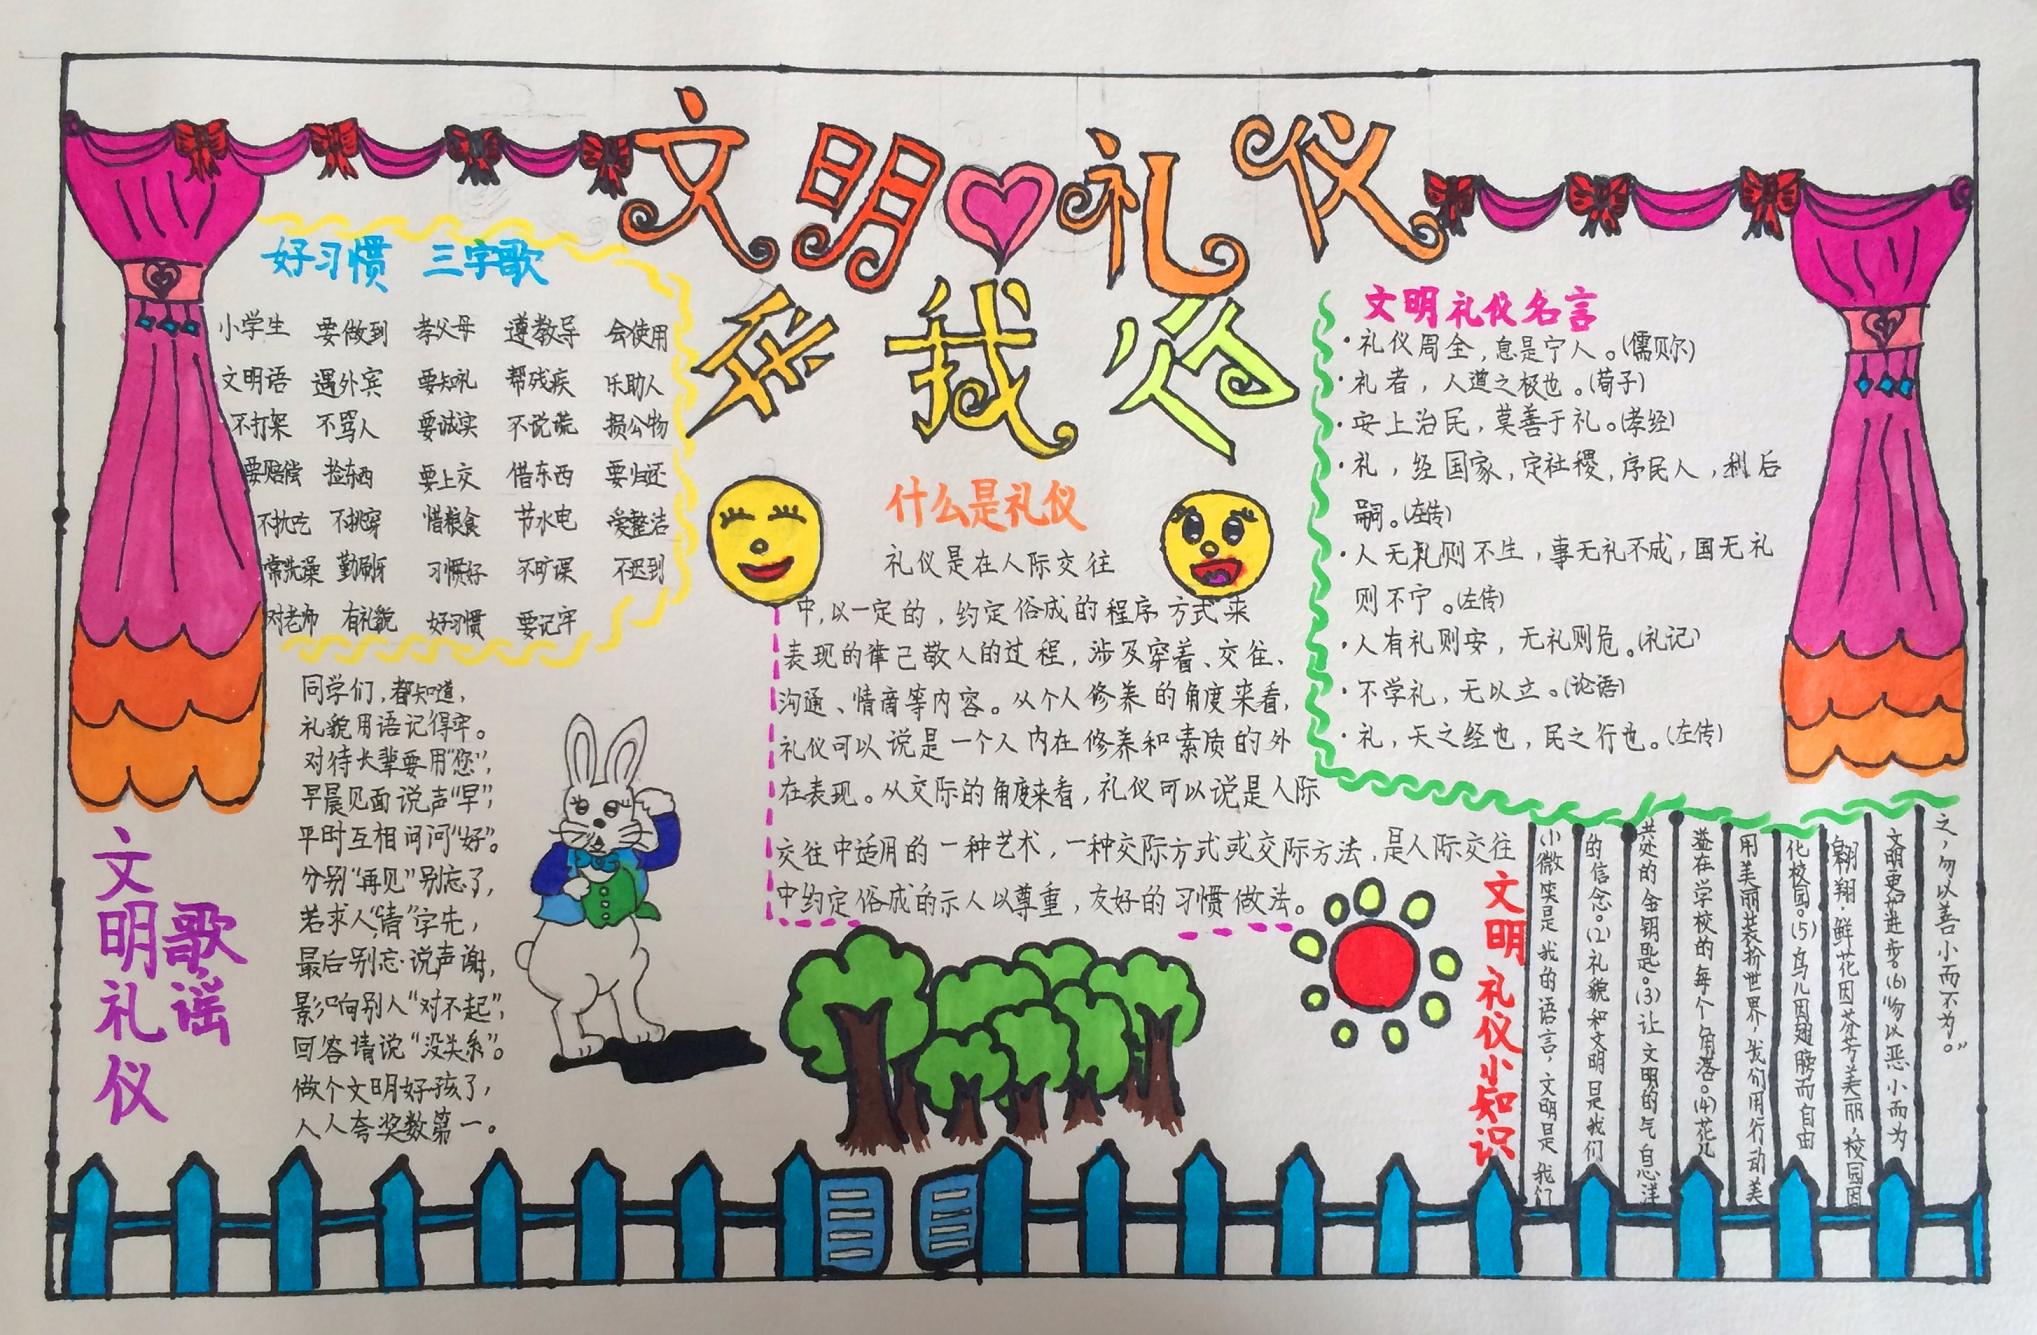 文明礼仪
在我心
好习惯 三字歌
小学生 要做到 孝父母 遵教导 会使用
文明语 遇外宾 要知礼 帮残疾 乐助人
不打架 不骂人 要诚实 不说谎 损公物
要赔偿 捡东西 要上交 借东西 要归还
不挑吃 不挑穿 惜粮食 节水电 爱整洁
常洗澡 勤刷牙 习惯好 不旷课 不迟到
对老师 有礼貌 好习惯 要记牢
同学们,都知道,
礼貌用语记得牢。
对待长辈要用“您”,
早晨见面说声“早”,
平时互相问问“好”。
分别“再见”别忘了,
若求人“请”字先,
最后别忘说声谢,
影响别人“对不起”,
回答请说“没关系”。
做个文明好孩了,
人人夸奖数第一。
文明礼仪
歌谣
什么是礼仪
礼仪是在人际交往
中,以一定的,约定俗成的程序方式来
表现的律己敬人的过程,涉及穿着、交往、
沟通、情商等内容。从个人修养的角度来看,
礼仪可以说是一个人内在修养和素质的外
在表现。从交际的角度来看,礼仪可以说是人际
交往中适用的一种艺术,一种交际方式或交际方法,是人际交往
中约定俗成的示人以尊重,友好的习惯做法。
文明礼仪名言
·礼仪周全,息是宁人。(儒贝尔)
·礼者,人道之极也。(荀子)
·安上治民,莫善于礼。(孝经)
·礼,经国家,定社稷,序民人,利后
嗣。(左传)
·人无礼则不生,事无礼不成,国无礼
则不宁。(左传)
·人有礼则安,无礼则危。(礼记)
·不学礼,无以立。(论语)
·礼,天之经也,民之行也。(左传)
文明礼仪小知识
小微笑是我的语言,文明是我们
的信念。(2)礼貌和文明是我们
共处的金钥匙。(3)让文明的气息洋
溢在学校的每个角落。(4)花儿
用美丽装扮世界,我们用行动美
化校园。(5)鸟儿因翅膀而自由
翱翔,鲜花因芬芳美丽,校园因
文明更加进步。(6)“勿以恶小而为
之,勿以善小而不为。”